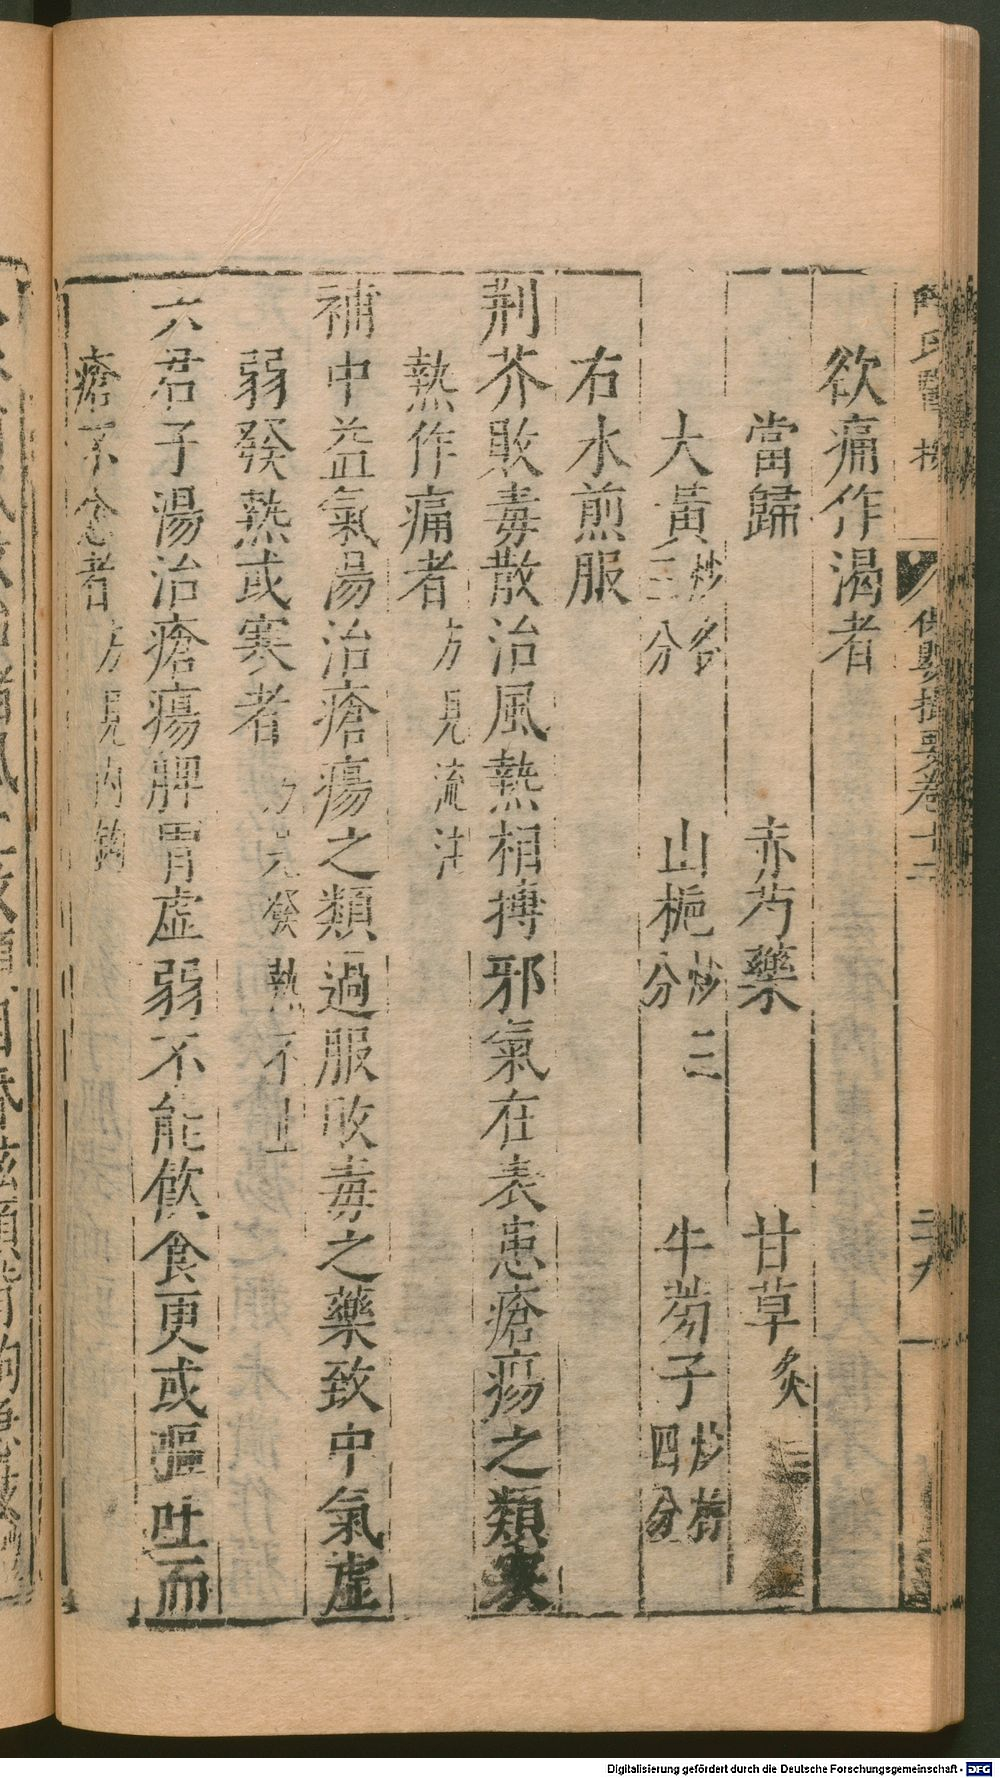 薛氏醫按 保嬰撮要卷十二 二九
欲痛作渴者
當歸 赤芍藥 甘草炙
大黃炒各三分 山梔炒三分 牛蒡子炒杵四分
右水煎服
荆芥敗毒散治風熱相搏邪氣在表患瘡瘍之類寒
熱作痛者方見流注
補中益氣湯治瘡瘍之類過服敗毒之藥致中氣虛
弱發熱或寒者方見發熱不止
六君子湯治瘡瘍脾胃虛弱不能飲食更或嘔吐而
瘡不愈者方見內釣
Digitalisierung gefördert durch die Deutsche Forschungsgemeinschaft - DFG